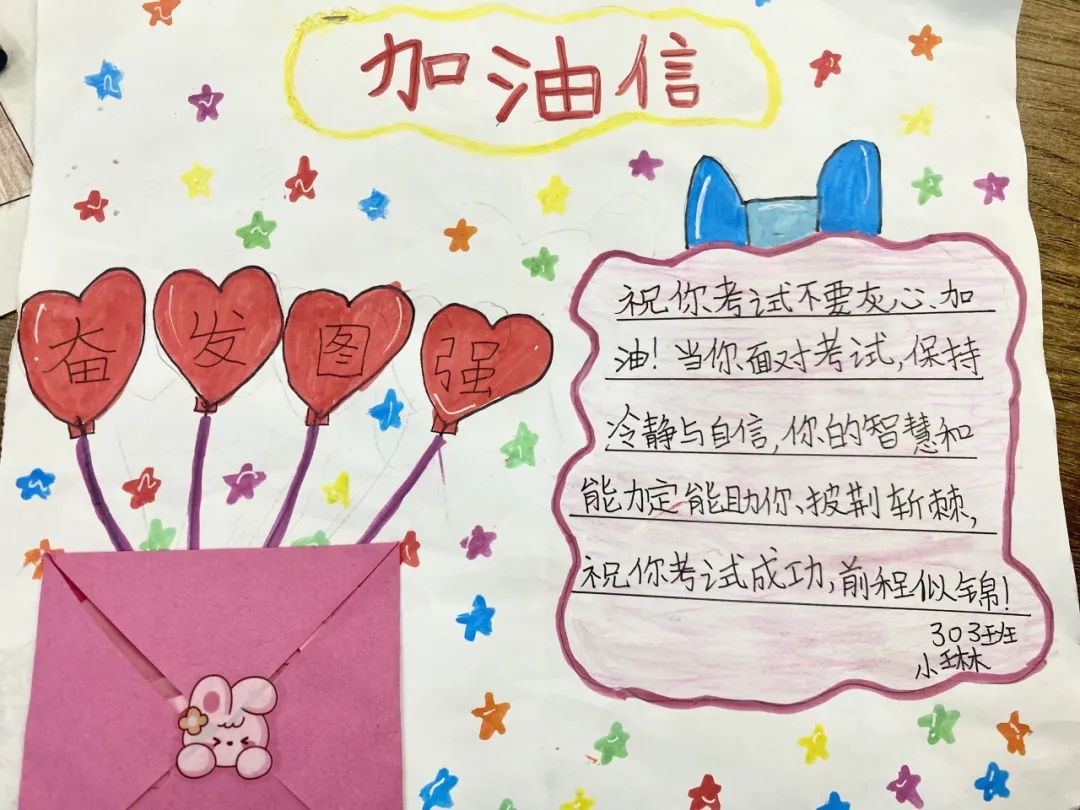 加油信
奋发图强
祝你考试不要灰心、加
油!当你面对考试,保持
冷静与自信,你的智慧和
能力定能助你、披荆斩棘,
祝你考试成功,前程似锦!
303班
小琳